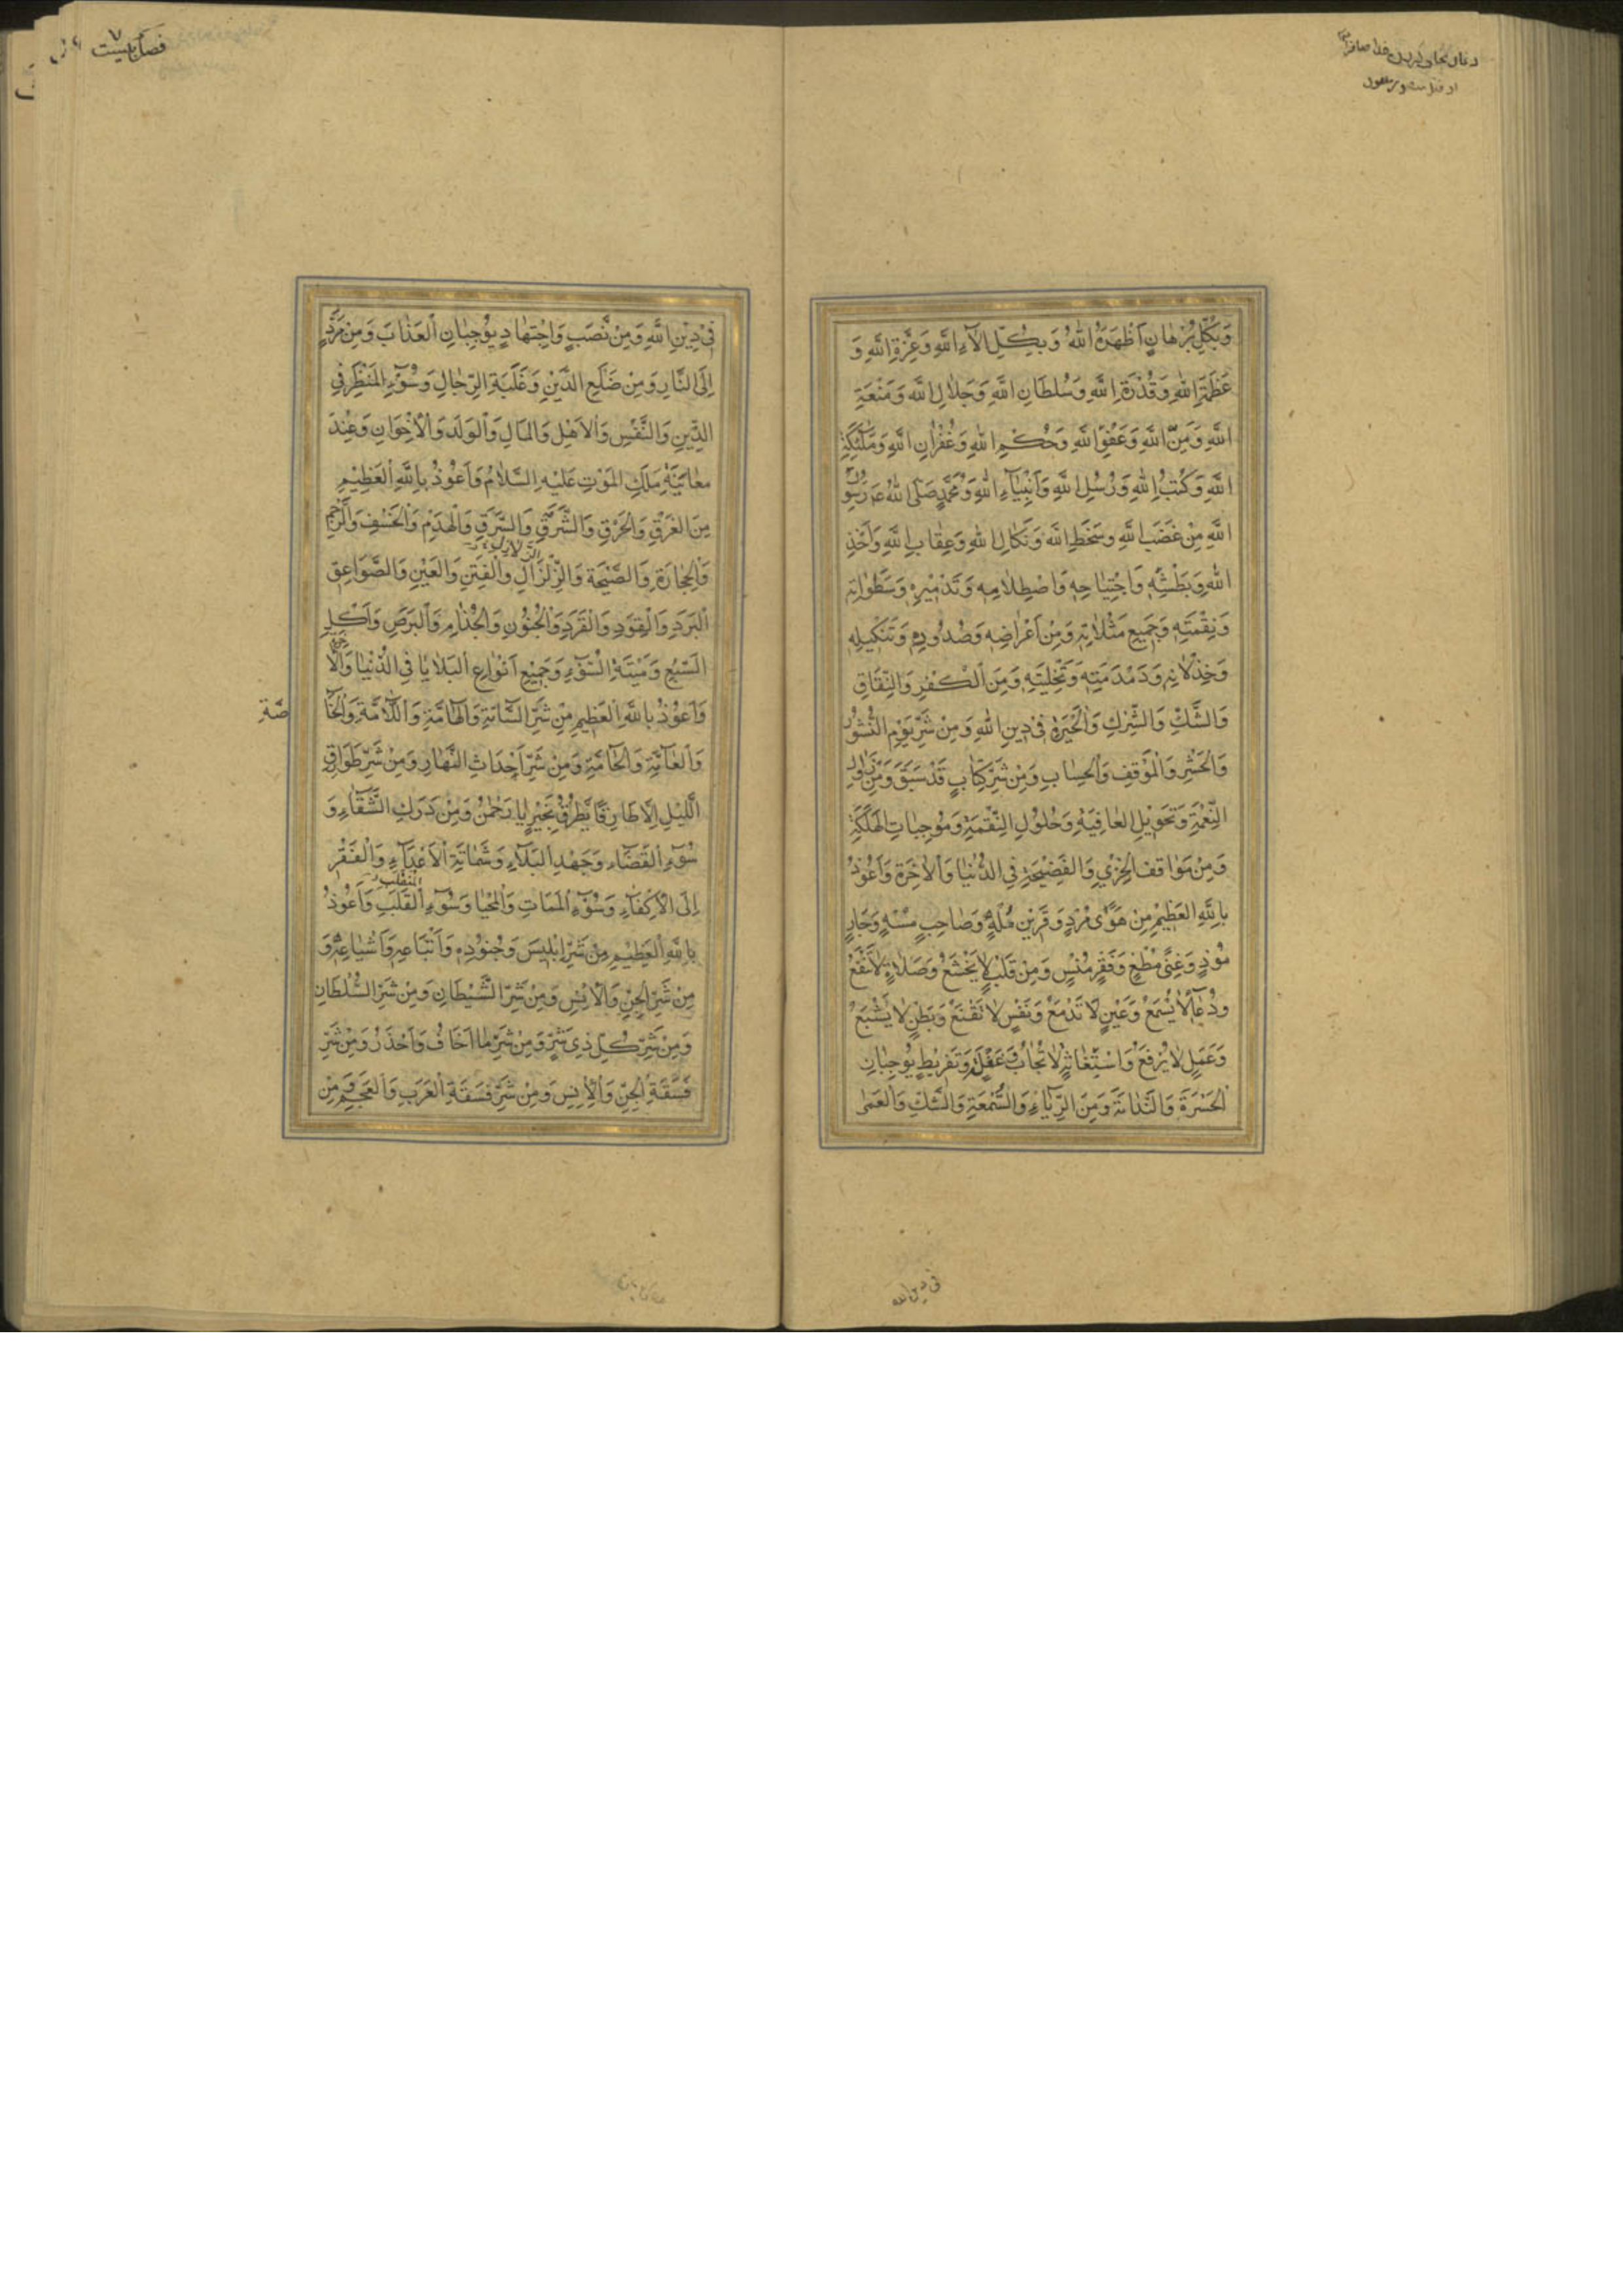 وَبِكُلِّ بُرْهَانٍ اَظْهَرَهُ اللهُ وَبِكُلِّ اٰلَاءِ اللهِ وَعِزَّةِ اللهِ وَ
عَظَمَةِ اللهِ وَقُدْرَةِ اللهِ وَسُلْطَانِ اللهِ وَجَلَالِ اللهِ وَمَنْعَةِ
اللهِ وَمَنِّ اللهِ وَعَفْوِ اللهِ وَحُكْمِ اللهِ وَغُفْرَانِ اللهِ وَمَلٰئِكَةِ
اللهِ وَكُتُبِ اللهِ وَرُسُلِ اللهِ وَاَنْبِيَاءِ اللهِ وَمُحَمَّدٍ صَلَّى اللهُ رَسُولِ
اللهِ مِنْ غَضَبِ اللهِ وَسَخَطِ اللهِ وَنَكَالِ اللهِ وَعِقَابِ اللهِ وَاَخْذِ
اللهِ وَبَطْشِهِ وَاجْتِيَاحِهِ وَاصْطِلَامِهِ وَتَدْمِيْرِهِ وَسَطَوَاتِهِ
وَنِقْمَتِهِ وَجَمِيعِ مَثُلَاتِهِ وَمِنْ اِعْرَاضِهِ وَصُدُودِهِ وَتَنْكِيلِهِ
وَخِذْلَانِهِ وَدَمْدَمَتِهِ وَتَخْلِيَتِهِ وَمِنَ الْكُفْرِ وَالنِّفَاقِ
وَالشَّكِّ وَالشِّرْكِ وَالْحَيْرَةِ فِي دِينِ اللهِ وَمِنْ شَرِّ يَوْمِ النُّشُوْرِ
وَالْحَشْرِ وَالْمَوْقِفِ وَالْحِسَابِ وَمِنْ شَرِّ كِتَابٍ قَدْ سَبَقَ وَمِنْ زَوَالِ
النِّعْمَةِ وَتَحْوِيْلِ الْعَافِيَةِ وَحُلُوْلِ النِّقْمَةِ وَمُوْجِبَاتِ الْهَلَكَةِ
وَمِنْ مَوَاقِفِ الْخِزْيِ وَالْفَضِيْحَةِ فِي الدُّنْيَا وَالْاٰخِرَةِ وَاَعُوْذُ
بِاللهِ الْعَظِيْمِ مِنْ هَوًى مُرْدٍ وَقَرِيْنٍ مُلْهٍ وَصَاحِبٍ مُسْهٍ وَجَارٍ
مُؤْذٍ وَغِنًى مُطْغٍ وَفَقْرٍ مُنْسٍ وَمِنْ قَلْبٍ لَا يَخْشَعُ وَصَلَاةٍ لَا تَنْفَعُ
وَدُعَاءٍ لَا يُسْمَعُ وَعَيْنٍ لَا تَدْمَعُ وَنَفْسٍ لَا تَقْنَعُ وَبَطْنٍ لَا يَشْبَعُ
وَعَمَلٍ لَا يُرْفَعُ وَاسْتِغَاثَةٍ لَا تُجَابُ وَغَفْلَةٍ وَتَفْرِيْطٍ يُوْجِبَانِ
الْحَسْرَةَ وَالنَّدَامَةَ وَمِنَ الرِّيَاءِ وَالسُّمْعَةِ وَالشَّكِّ وَالْعَمٰى
فى دين الله
فِي دِيْنِ اللهِ وَمِنْ نَصَبٍ وَاجْتِهَادٍ يُوْجِبَانِ الْعَذَابَ وَمِنْ مَرَدٍّ
اِلَى النَّارِ وَمِنْ ضَلَعِ الدَّيْنِ وَغَلَبَةِ الرِّجَالِ وَسُوْءِ الْمَنْظَرِ فِي
الدِّيْنِ وَالنَّفْسِ وَالْاَهْلِ وَالْمَالِ وَالْوَلَدِ وَالْاِخْوَانِ وَعِنْدَ
مُعَايَنَةِ مَلَكِ الْمَوْتِ عَلَيْهِ السَّلَامُ وَاَعُوْذُ بِاللهِ الْعَظِيْمِ
مِنَ الْغَرَقِ وَالْحَرَقِ وَالشَّرَقِ وَالسَّرَقِ وَالْهَدْمِ وَالْخَسْفِ وَالرَّجْمِ
وَالْحِجَارَةِ وَالصَّيْحَةِ وَالزِّلْزَالِ وَالْفِتَنِ وَالْعَيْنِ وَالصَّوَاعِقِ
الْبَرَدِ وَالْقَوَدِ وَالْقَرَدِ وَالْجُنُوْنِ وَالْجُذَامِ وَالْبَرَصِ وَاَكْلِ
السَّبُعِ وَمِيْتَةِ السُّوْءِ وَجَمِيْعِ اَنْوَاعِ الْبَلَايَا فِي الدُّنْيَا وَالْاٰخِرَةِ
وَاَعُوْذُ بِاللهِ الْعَظِيْمِ مِنْ شَرِّ السَّامَّةِ وَالْهَامَّةِ وَاللَّامَّةِ وَالْخَاصَّةِ
وَالْعَامَّةِ وَالْحَامَّةِ وَمِنْ شَرِّ اَحْدَاثِ النَّهَارِ وَمِنْ شَرِّ طَوَارِقِ
اللَّيْلِ اِلَّا طَارِقًا يَطْرُقُ بِخَيْرٍ يَا رَحْمٰنُ وَمِنْ دَرَكِ الشَّقَاءِ وَ
سُوْءِ الْقَضَاءِ وَجَهْدِ الْبَلَاءِ وَشَمَاتَةِ الْاَعْدَاءِ وَالْفَقْرِ
اِلَى الْاَكْفَاءِ وَسُوْءِ الْمَمَاتِ وَالْمَحْيَا وَسُوْءِ الْمُنْقَلَبِ وَاَعُوْذُ
بِاللهِ الْعَظِيْمِ مِنْ شَرِّ اِبْلِيْسَ وَجُنُوْدِهِ وَاَتْبَاعِهِ وَاَشْيَاعِهِ وَ
مِنْ شَرِّ الْجِنِّ وَالْاِنْسِ وَمِنْ شَرِّ الشَّيْطَانِ وَمِنْ شَرِّ السُّلْطَانِ
وَمِنْ شَرِّ كُلِّ ذِي شَرٍّ وَمِنْ شَرِّ مَا اَخَافُ وَاَحْذَرُ وَمِنْ شَرِّ
فَسَقَةِ الْجِنِّ وَالْاِنْسِ وَمِنْ شَرِّ فَسَقَةِ الْعَرَبِ وَالْعَجَمِ وَمِنْ